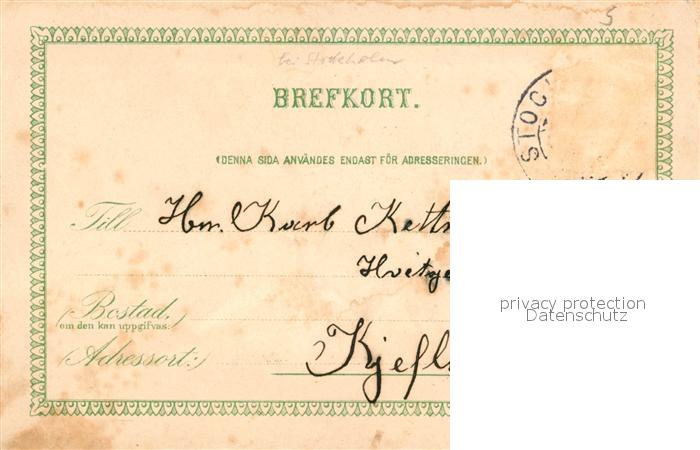 5
bei Stockholm
BREFKORT.
STOC
(DENNA SIDA ANVÄNDES ENDAST FÖR ADRESSERINGEN.)
Till Hrn. Karl Kett
Hvitge
(Bostad,)
om den kan uppgifvas:
(Adressort:) Kjefl
privacy protection
Datenschutz